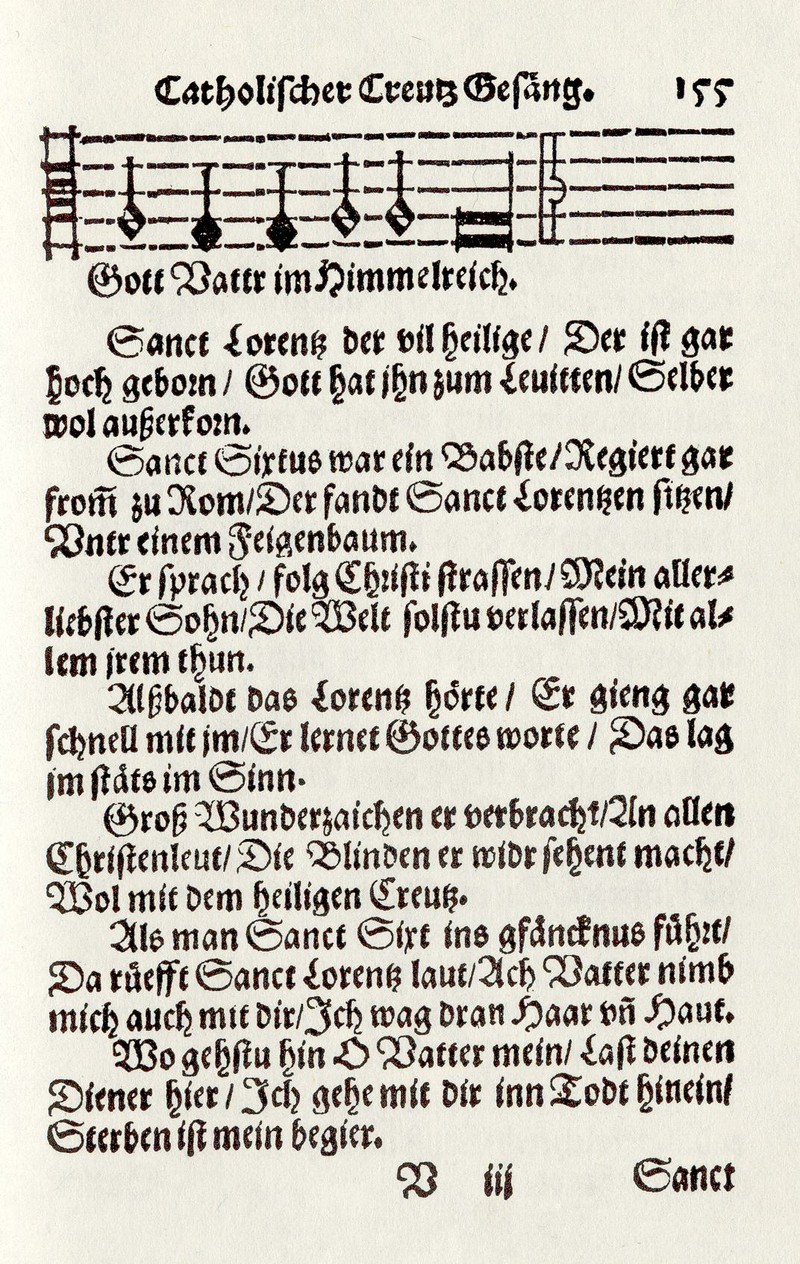 Catholischer Creutz Gesäng. 155
Gott Vattr im Himmelreich.
Sanct Lorentz der vil heilige / Der ist gar
hoch geborn / Gott hat jhn zum Leuitten / Selber
wol außerkorn.
Sanct Sixtus war ein Babste / Regiert gar
from̃ zu Rom / Der fandt Sanct Lorentzen sitzen /
Vntr einem Feigenbaum.
Er sprach / folg Christi strassen / Mein aller⸗
liebster Sohn / Die Welt solstu verlassen / Mit al⸗
lem jrem thun.
Alßbaldt das Lorentz hörte / Er gieng gar
schnell mit jm / Er lernet Gottes worte / Das lag
jm stäts im Sinn.
Groß Wunderzaichen er verbracht / An allen
Christenleut / Die Blinden er widr sehent macht /
Wol mit dem heiligen Creutz.
Als man Sanct Sixt ins gfäncknus führt /
Da rüefft Sanct Lorentz laut / Ach Vatter nimb
mich auch mit dir / Ich wag dran Haar vñ Haut.
Wo gehstu hin O Vatter mein / Last deinen
Diener hier / Ich gehe mit dir inn Todt hinein /
Sterben ist mein begier.
V iij Sanct